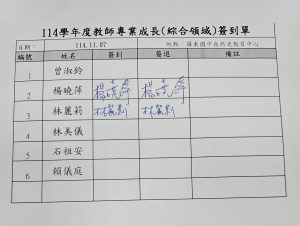 114學年度教師專業成長(綜合領域)簽到單
日期: 114.11.07 地點:羅東國中自然史教育中心
編號 姓名 簽到 簽退 備註
1 曾淑鈴
2 楊曉萍 楊曉萍 楊曉萍
3 林麗莉 林麗莉 林麗莉
4 林美儀
5 石祖安
6 賴儀庭